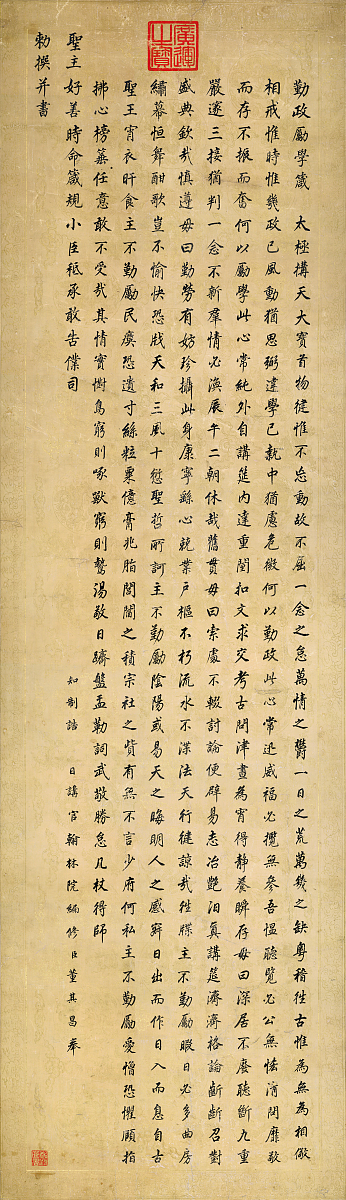 廣運之寶
勤政勵學箴 太極搆天大寶首物健惟不忘動故不屈一念之怠萬情之鬱一日之荒萬幾之缺粵稽往古惟為無為相儆
相戒惟時惟幾政已風動猶思弼違學已就中猶慮危微何以勤政此心常迅威福必攬無參吾愠聽覽必公無恡淆閉靡敢
而存不振而奮何以勵學此心常純外自講筵內達重闈扣文求交考古問津晝為宵得靜養瞬存毋曰深居不廢聽斷九重
嚴邃三接猶判一念不新羣情必渙辰午二朝休哉舊貫毋曰索處不輟討論便辟易志冶艷汩真講筵濟濟格論齗齗召對
盛典欽哉慎遵毋曰勤勞有妨珍攝此身康寧繇心兢業戶樞不朽流水不渫法天行健諒哉往牒主不勤勵暇日必多曲房
繡幕恒舞酣歌豈不愉快恐戕天和三風十愆聖哲所訶主不勤勵陰陽或易天之晦明人之感寤日出而作日入而息自古
聖王宵衣旰食主不勤勵民瘼恐遺寸絲粒粟億膏兆脂閭閻之積宗社之貲有無不言少府何私主不勤勵愛憎恐懼頤指
拂心榜箠任意敢不受哉其情實懟鳥窮則啄獸窮則鷙湯敬日躋盤盂勒詞武敬勝怠几杖得師
聖主好善時命箴規小臣祗承敢告僕司 知制誥 日講官翰林院編修臣董其昌奉
勅撰并書